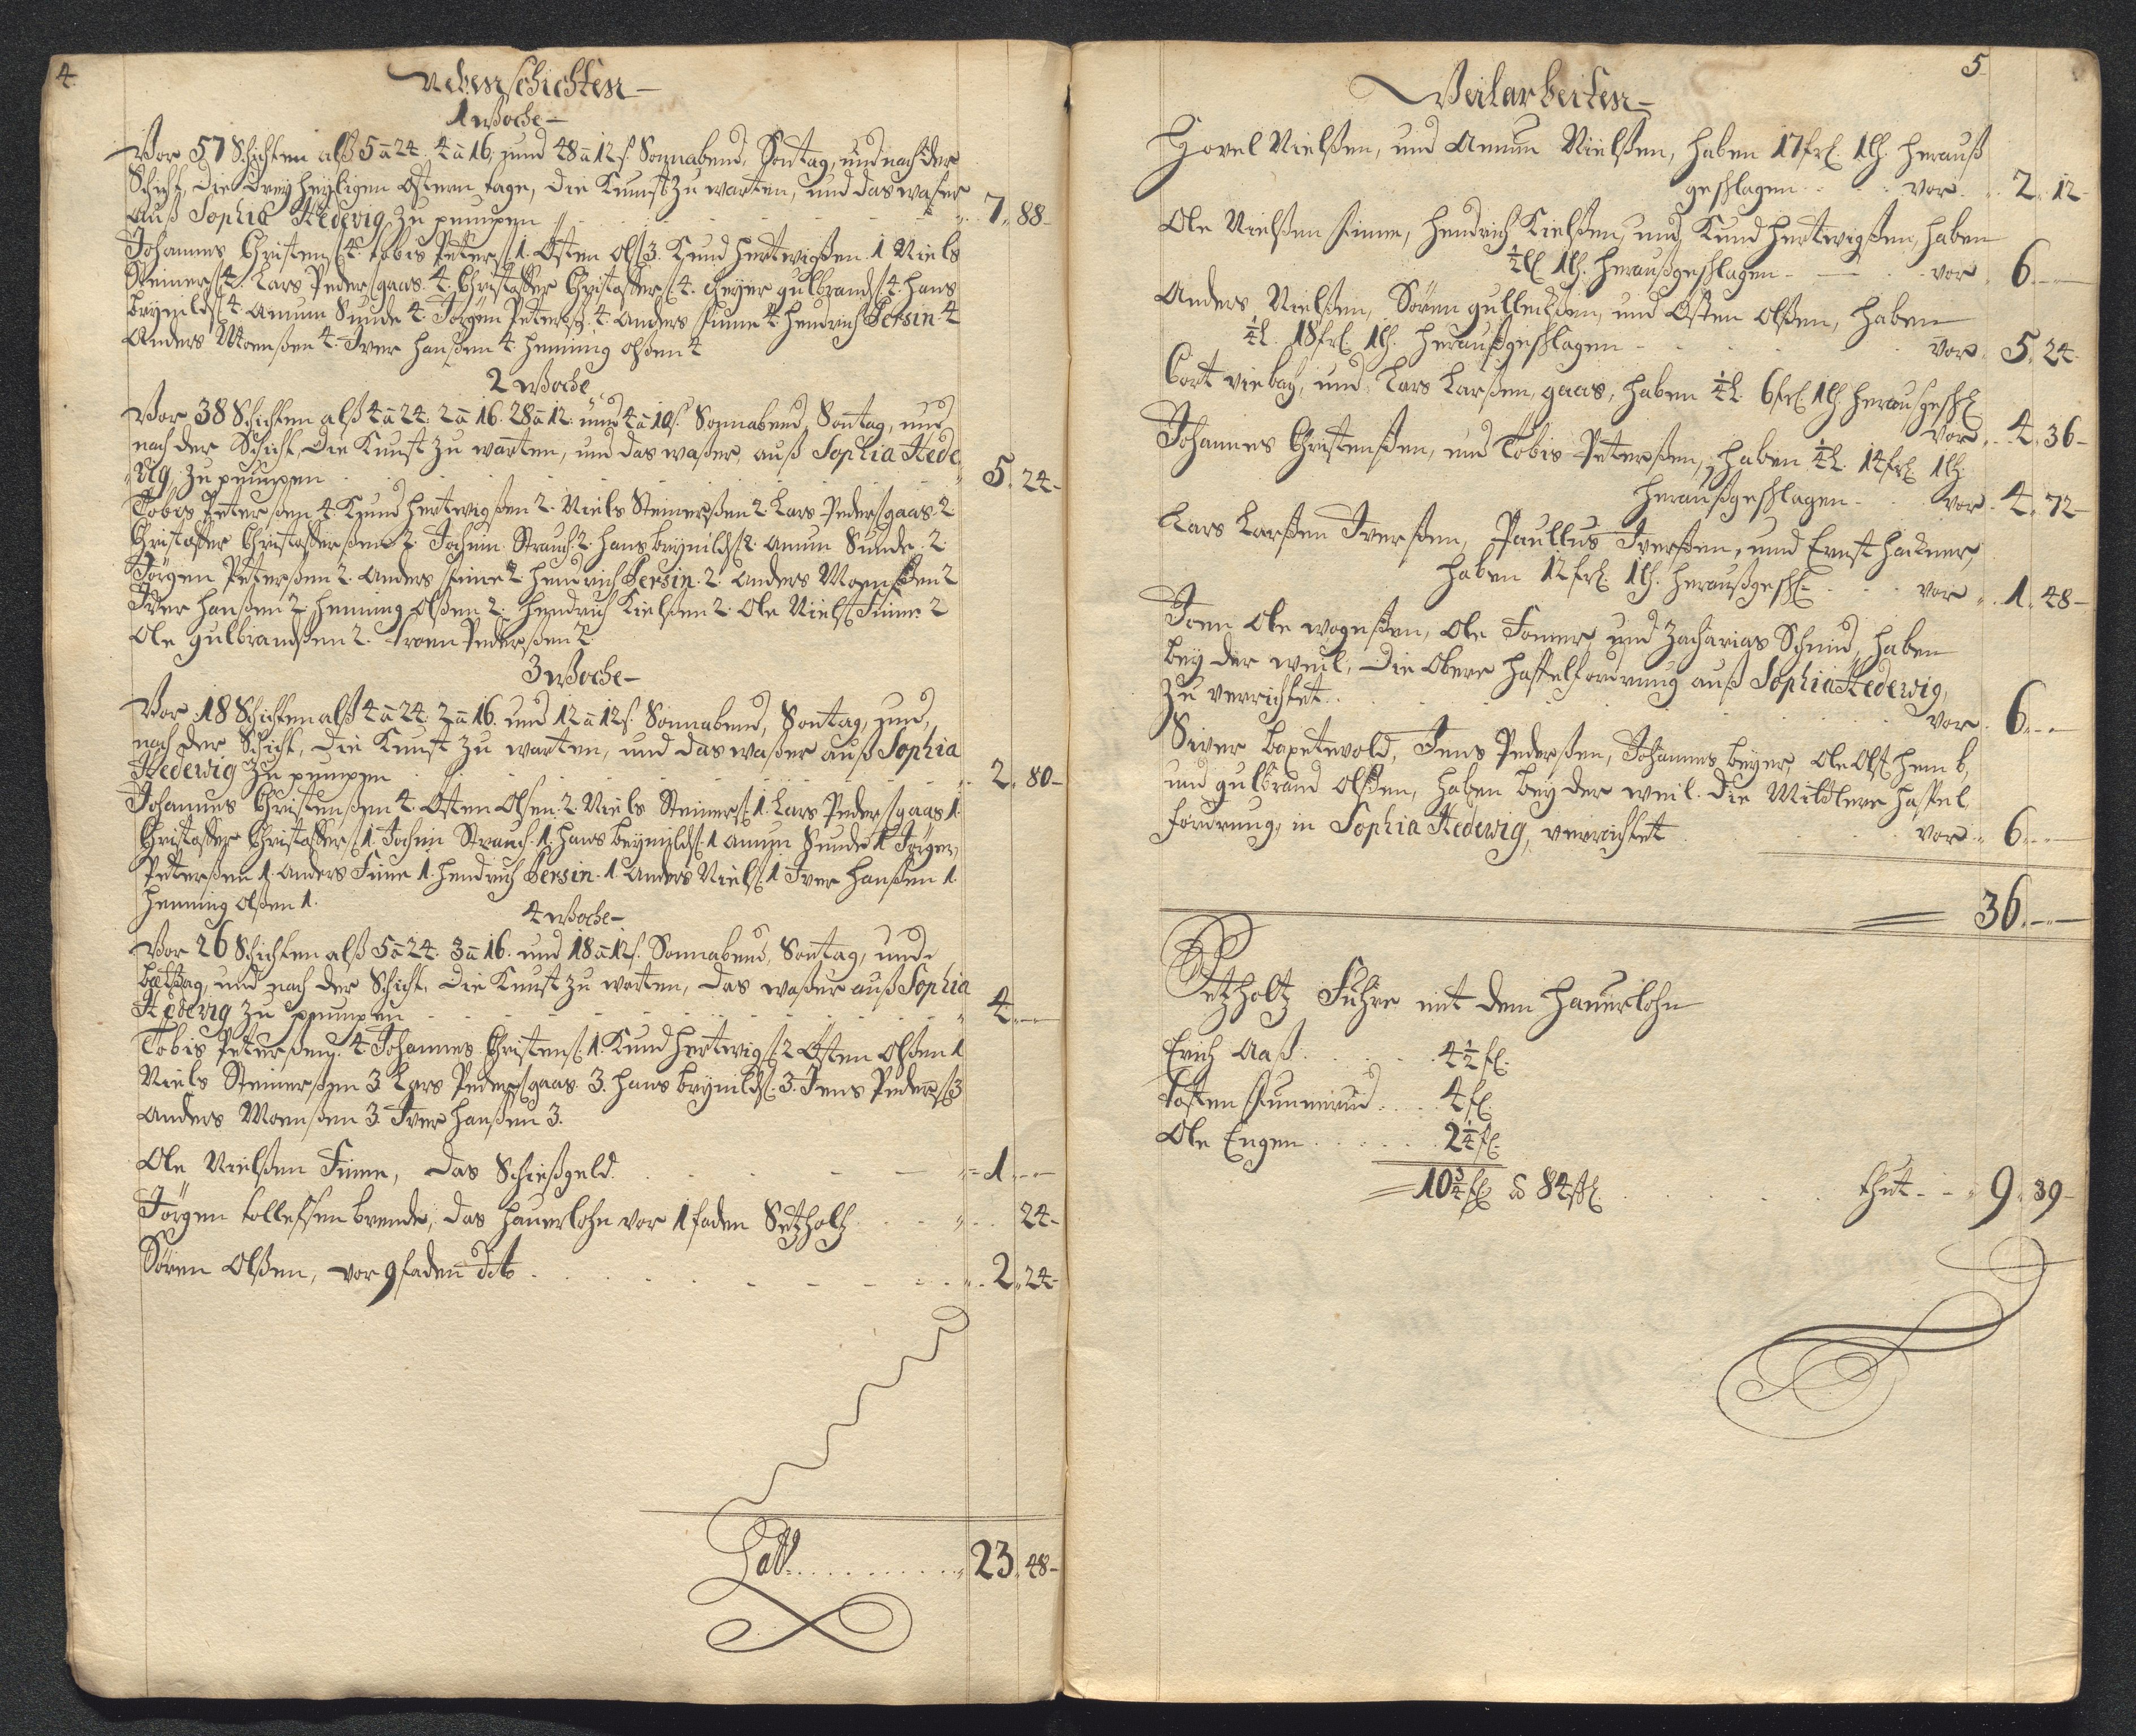 4.
Nebenschichten
1 Woche
Vor 57 Schichten alß 5 a 24. 4 a 16. und 48 a 12 s. Sonnabend, Sontag, und nach der
Schicht, die drey heyligen ostern tage, die Kunst zu warten, und das waßer
auß Sophia Hedevig zu pumpen 7. 88
Johannes Christens. 4. Tobis Peters. 1. Osten Ols. 3. Knud Hertwigßen 1 Niels
Steiners. 4. Lars Peders. gaas. 4. Christoffer Christoffers. 4. Geger gulbrands. 4. Hans
Brynilds. 4. Amun Sunde 4. Jörgen Peterss. 4. Anders Finne 4. Hendrich Persin 4
Anders Monßen 4. Iver Hanßen 4. Henning olßen 4
2 Woche
Vor 38 Schichten alß 4 a 24. 2 a 16. 28 a 12. und 4 a 10 s. Sonnabend, Sontag, und
nach der Schicht, die Kunst zu warten, und das waßer, auß Sophia Hede
vig, zu pumpen 5. 24
Tobis Peterßen 4 Knud Hertwigßen 2. Niels Steinerßen 2. Lars Peders. gaas. 2
Christoffer Christofferßen 2. Jochim Strauch 2. Hans Brynilds. 2. Amun Sunde. 2.
Jörgen Peterßen 2. Anders Finne 2 Hendrich Persin. 2. Anders Monßen 2
Iver Hanßen 2. Henning Olßen 2. Hendrich Kielßen 2. Ole Niels. Finne 2
Ole gulbrandßen 2. Troen Pederßen 2.
3 Woche
Vor 18 Schichten alß 4 a 24. 2 a 16. und 12 a 12 s. Sonnabend, Sontag, und,
nach der Schicht, die Kunst zu warten, und das waßer auß Sophia
Hedewig zu pumpen 2. 80
Johannes Christenßen 4. Osten Olsen. 2. Niels Steiners. 1. Lars Peders. gaas 1.
Christoffer Christoffers. 1. Jochim Strauch. 1. Hans Brynilds. 1 Amun Sunde 1 Jörgen,
Peterßen 1. Anders Finne 1. Hendrich Persin. 1. Anders Niels. 1 Iver Hanßen 1.
Henning Olßen 1.
4 Woche
Vor 26 Schichten alß 5 a 24. 3 a 16. und 18 a 12 s. Sonnabend, Sontag, und
bettag, und nach der Schicht, die Kunst zu warten, das waßer auß Sophia
Hedevig zu pumpen 4.
Tobis Peterßen. 4 Johannes Christens. 1. Knud Hertwigs. 2 Osten Olßen 1
Niels Steinerßen 3 Lars Peders. gaas. 3. Hans Brynilds. 3. Jens Peders. 3
Anders Monßen 3. Iver Hanßen 3.
Ole Nielßen Finne, das Schießgeld 1
Jörgen Tollefsen brende, das Hauerlohn vor 1 faden Setzholtz 24
Sören Olßen, vor 9 faden dito 2. 24
Latt. 23. 48
5
Weilarbeiten
Hovel Nielßen, und Amun Nielßen, haben 17 frl. 1 lh. herauß
geschlagen vor 2. 12
Ole Nielßen Finne, Hendrich Kielßen, und Knud Hertwigßen, haben
½ l. 1 lh. heraußgeschlagen vor 6
Anders Nielßen, Sören gullichßen, und Osten Olßen, haben
¼ l. 18 frl. 1 lh. heraußgeschlagen vor 5. 24
Cort viebach, und Lars Larßen, gaas, haben ¼ l. 6 frl. 1 lh heraußgeschl.
vor 4. 36
Johannes Christenßen, und Tobis Peterßen, haben ¼ l. 14 frl. 1 lh.
heraußgeschlagen vor 4. 72
Lars Larßen Iverßen, Paullus Iverßen, und Ernst Hackner,
haben 12 frl. 1 lh. heraußgeschl. vor 1. 48
Joen Ole wogenßen, Ole Fomer, und Zacharias Schmid, haben
bey der weil, die Obere Haspelfordrung auß Sophia Hedewig,
zu verrichtet vor 6
Siver Bapetevold, Jens Pederßen, Johannes beyer, Ole Ols. Hemb,
und gulbrand Olßen, haben bey der weil. die Mitlere Haspel
fordrung, in Sophia Hedewig, verrichtet vor 6
36.
Setzholtz Fuhre mit dem Hauerlohn
Erich Aaß 4½ fl.
Tosten Funnerud 4 fl.
Ole Engen 2¼ fl.
10¾ fl. a 84 ß. thut 9. 39